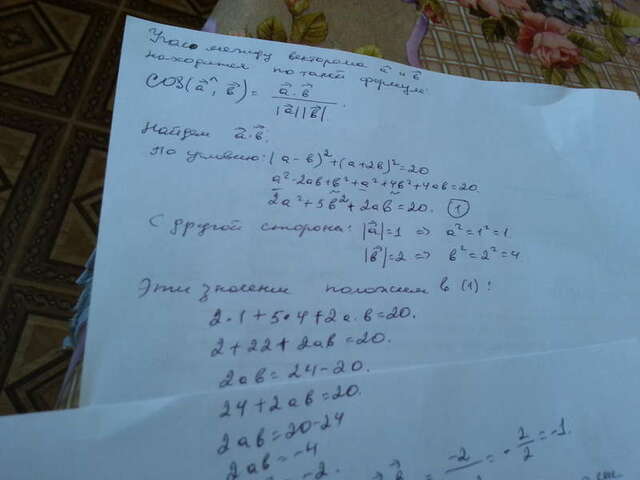 Угол между векторами a⃗ и b⃗
находится по такой формуле:
cos(a⃗^, b⃗) = a⃗·b⃗ / |a⃗||b⃗|.
Найдем a⃗·b⃗.
По условию: (a-b)²+(a+2b)²=20
a²-2ab+b²+a²+4b²+4ab=20.
2a²+5b²+2ab=20. (1)
С другой стороны: |a⃗|=1 => a²=1²=1
|b⃗|=2 => b²=2²=4.
Эти значения положим в (1):
2·1+5·4+2a·b=20.
2+22+2ab=20.
2ab=24-20.
24+2ab=20.
2ab=20-24
2ab=-4
=-2. = -2 = -2/2 = -1.